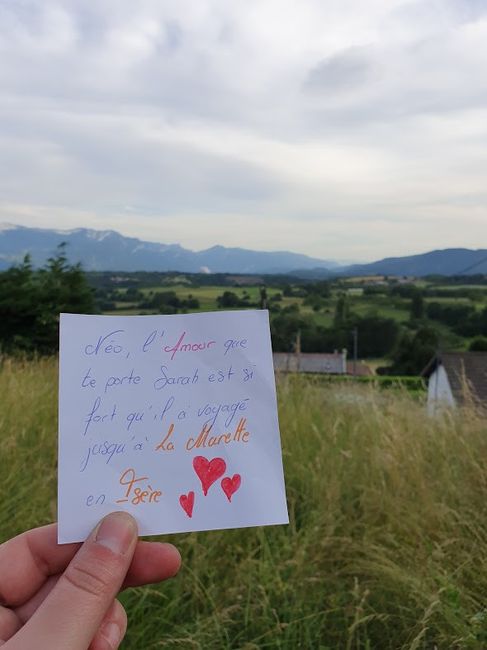 Néo, l'Amour que
te porte Sarah est si
fort qu'il a voyagé
jusqu'à La Murette
en Isère